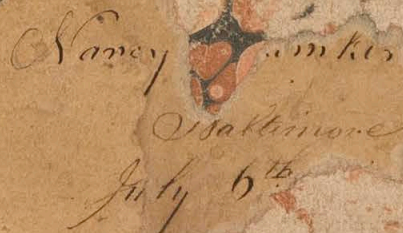 Nancy
Baltimore
July 6th